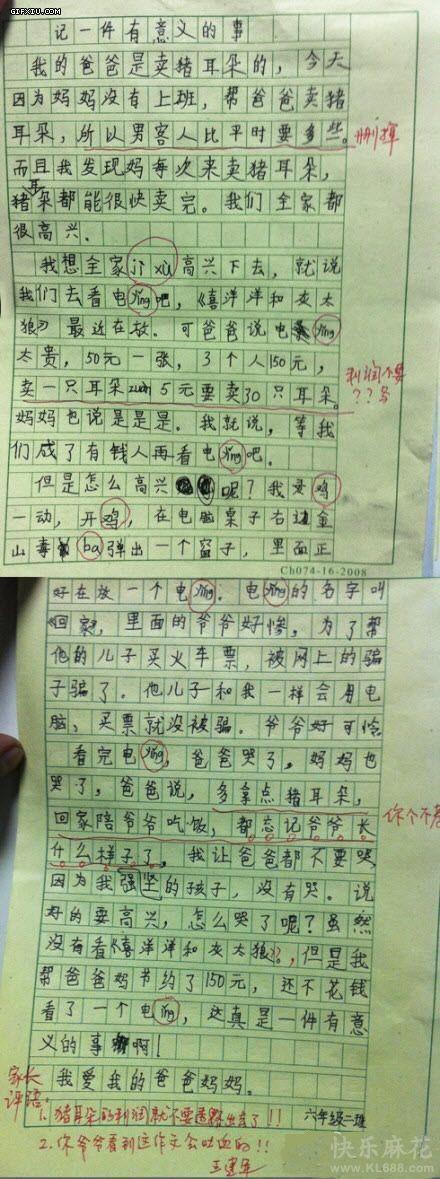 GIFXIU.COM
记一件有意义的事
我的爸爸是卖猪耳朵的，今天
因为妈妈没有上班，帮爸爸卖猪
耳朵，所以男客人比平时要多些。
删掉
而且我发现妈每次来卖猪耳朵，
猪耳朵都能很快卖完。我们全家都
很高兴．
我想全家jì xù高兴下去，就说
我们去看电yǐng吧，《喜洋洋和灰太
狼》最近在放。可爸爸说电yǐng
太贵，50元一张，3个人150元，
卖一只耳朵zuàn5元要卖30只耳朵。
利润不要
？？多
妈妈也说是是是。我就说，等我
们成了有钱人再看电yǐng吧．
但是怎么高兴呢？我灵鸡
一动，开鸡，在电脑桌子右边金
山毒bà弹出一个窗子，里面正
Ch074-16-2008
好在放一个电yǐng．电yǐng的名字叫
《回家》，里面的爷爷好惨。为了帮
他的儿子买火车票，被网上的骗
子骗了。他儿子和我一样会用电
脑，买票就没被骗。爷爷好可怜
看完电yǐng，爸爸哭了，妈妈也
哭了，爸爸说，多拿点猪耳朵，
回家陪爷爷吃饭，都忘记爷爷长
你个不孝
什么样子了，我让爸爸都不要哭
因为我强坚的孩子，没有哭。说
好的要高兴，怎么哭了呢？虽然
没有看《喜洋洋和灰太狼》，但是我
帮爸爸妈节约了150元，还不花钱
看了一个电yǐng，这真是一件有意
义的事啊！
我爱我的爸爸妈妈。
家长
评语：
1．猪耳朵的利润就不要透露出去了！！
六年级二班
2．你爷爷看到这作文会吐血的！！
王建军
快乐麻花
www.KL688.com